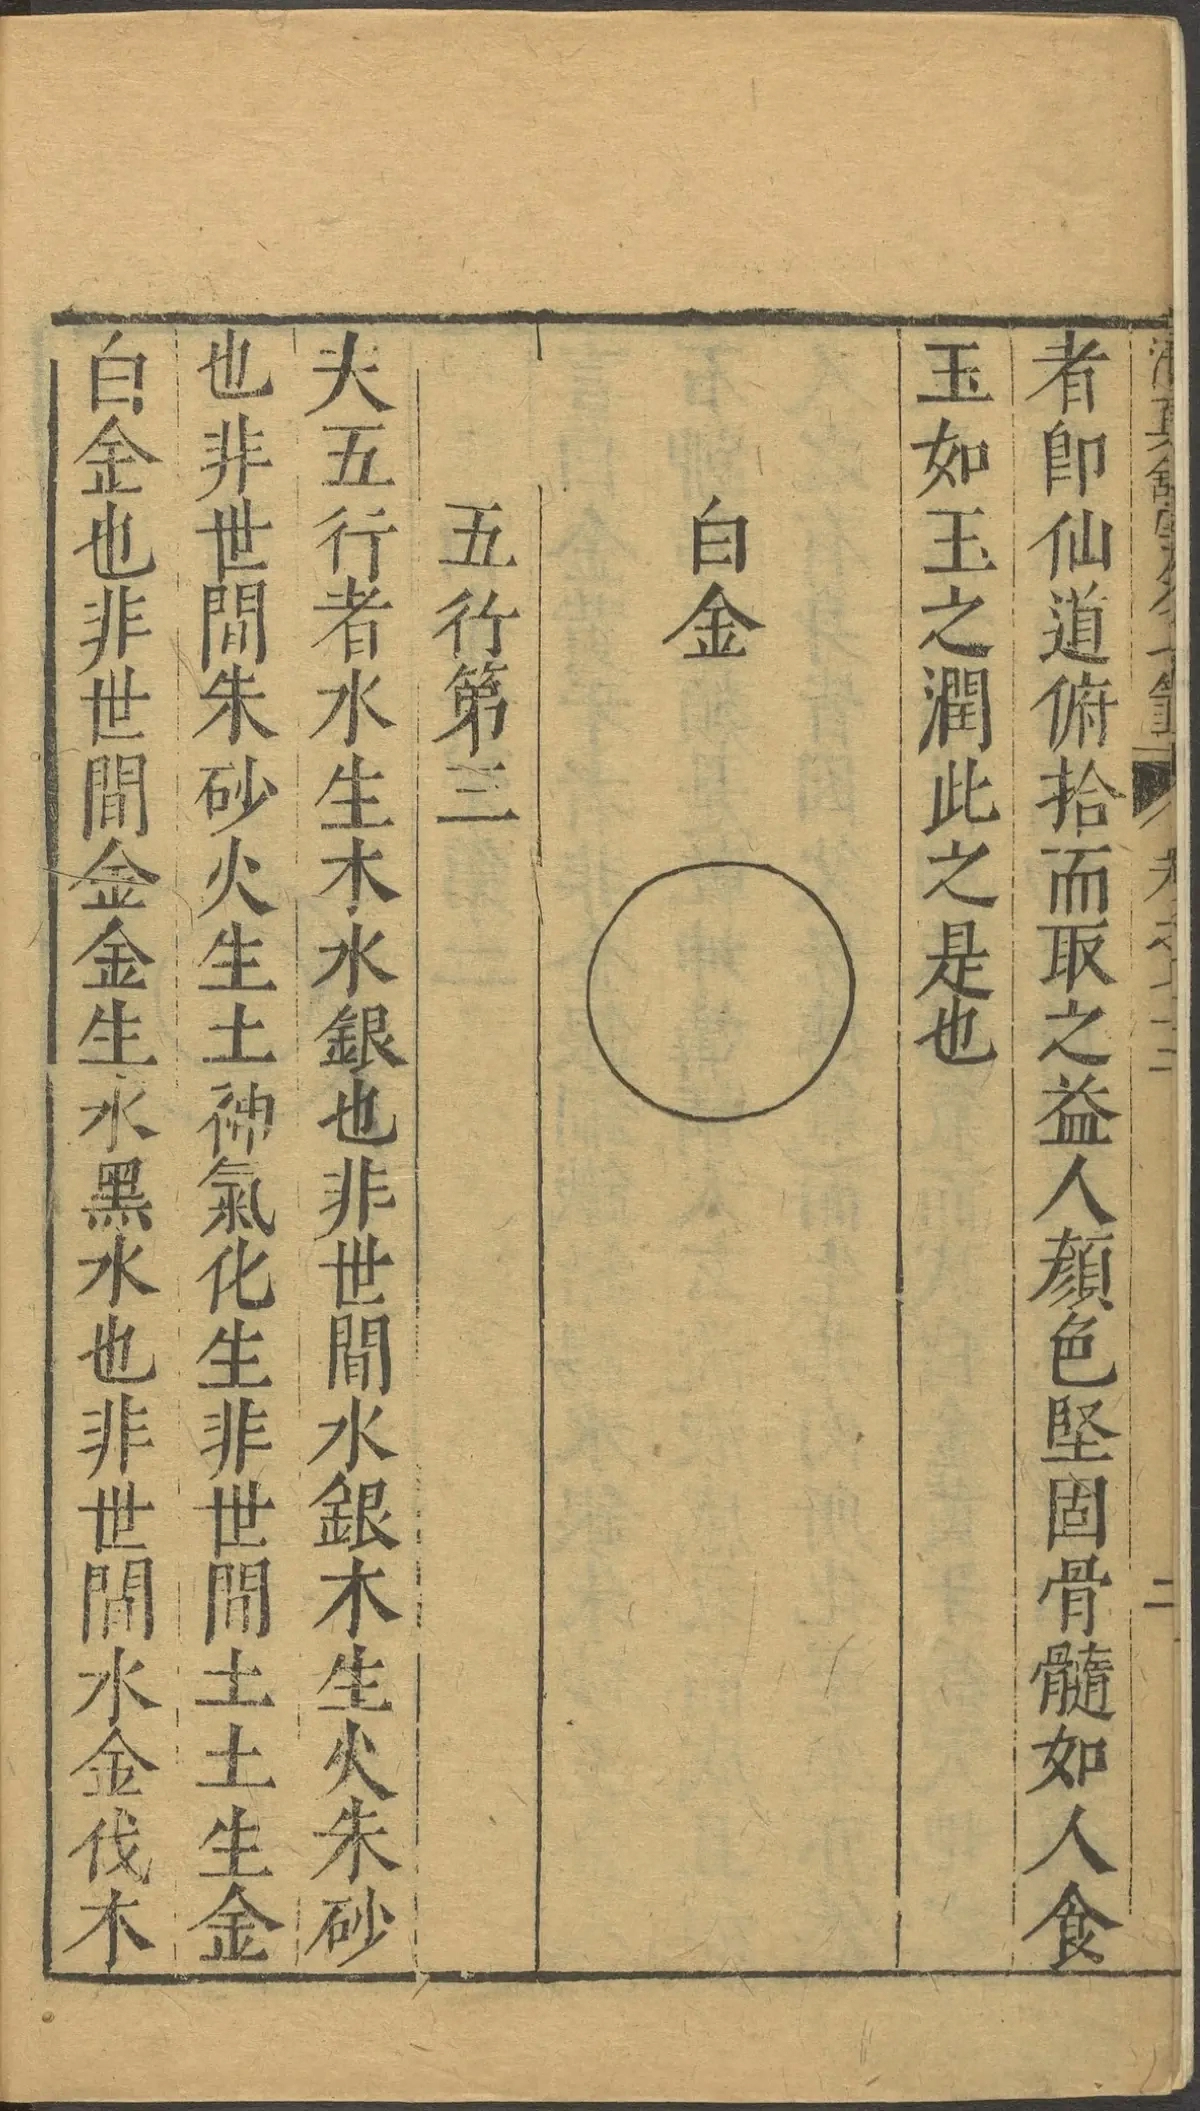 者即仙道俯拾而取之益人顏色堅固骨髓如人食
玉如玉之潤此之是也
白金
五行第三
夫五行者水生木水銀也非世間水銀木生火朱砂
也非世間朱砂火生土神氣化生非世間土土生金
白金也非世間金金生水黑水也非世間水金伐木